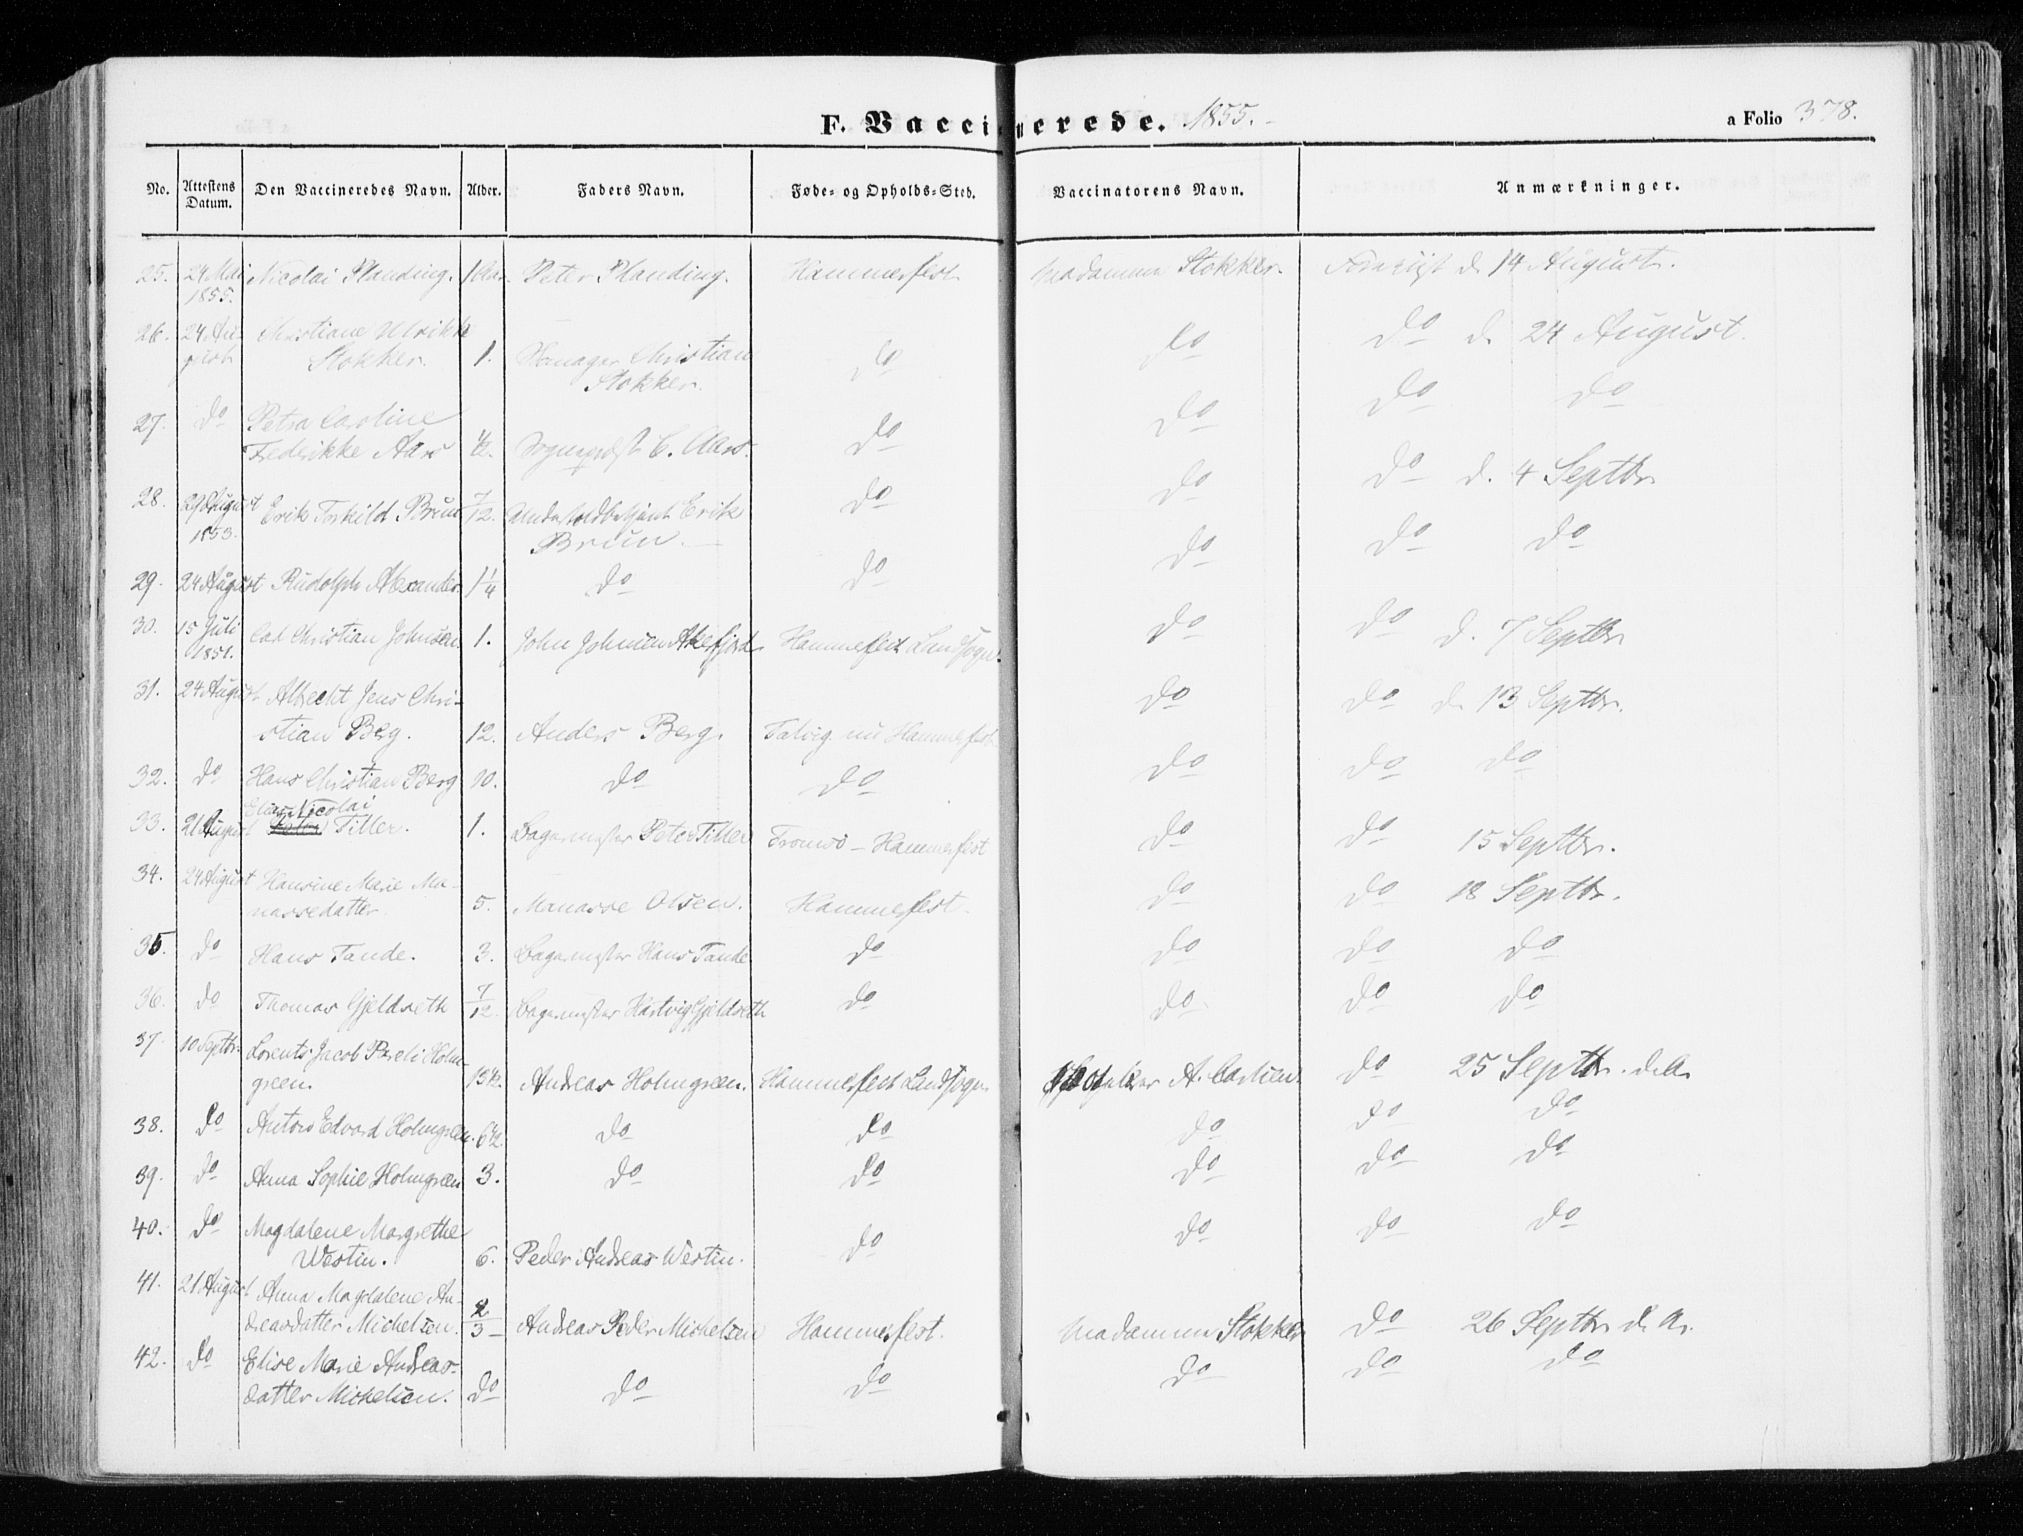 F. Vaccinerede. 1855.-
a Folio 378.
No. Attestens Datum. Den Vaccineredes Navn. Alder. Faders Navn. Føde- og Opholds-Sted. Vaccinatorens Navn. Anmærkninger.
25. 24 Mai Nicolai Planding. 1 Peter Planding. Hammerfest Madamme Stokker. d. 14 August.
1855.
26. 24 Au- Christiane Ulrikke
gust Stokker. 1. Christian do do do d. 24 August.
Stokker.
27. do Petra Caroline
Frederikke Aars ½. Sogneprest C. Aars. do do do do
28. 29 August Erik Torkild Brun 7/12. Erik do do do d. 4 Septbr
1853. Brun.
29. 24 August Rudolph Alexander 1¼ do do do do do
30. 15 Juli Carl Christian Johnsen 1. John Johnsen Hammerfest Landsogn. do do d. 7 Septbr
1851.
31. 24 August Albrecht Jens Chri-
stian Berg. 12. Anders Berg. Talvig nu Hammerfest do do d. 13 Septbr.
32. do Hans Christian Berg 10. do do do do do
Elias Nicolai
33. 21 August Tiller. 1. Bagermester Peter Tiller Tromsö - Hammerfest do do 15 Septbr.
34. 24 August Hansine Marie Ma-
nassedatter 5. Manasse Olsen. Hammerfest. do do 18 Septbr.
35. do Hans Tande. 3. Bagermester Hans Tande do do do do
36. do Thomas Gjeldseth 7/12. Bagermester Hartvig Gjeldseth do do do do
37. 10 Septbr. Lorents Jacob Pareli Holm-
green. 13½. Andreas Holmgreen. Hammerfest Landsogn A. Carlsen do 25 Septbr. d.A.
38. do Anton Edvard Holmgreen. 6½ do do do do do
39. do Anna Sophie Holmgreen 3. do do do do do
40. do Magdalene Margrethe
Westin. 6. Peder Andreas Westin. do do do do
41. 21 August Anna Magdalene An-
dreasdatter Michelsen. 2/3 Andreas Peder Michelsen Hammerfest. Madamme Stokker do 26 Septbr. d. A.
42. do Elise Marie Andreas-
datter Michelsen. do do do do do do